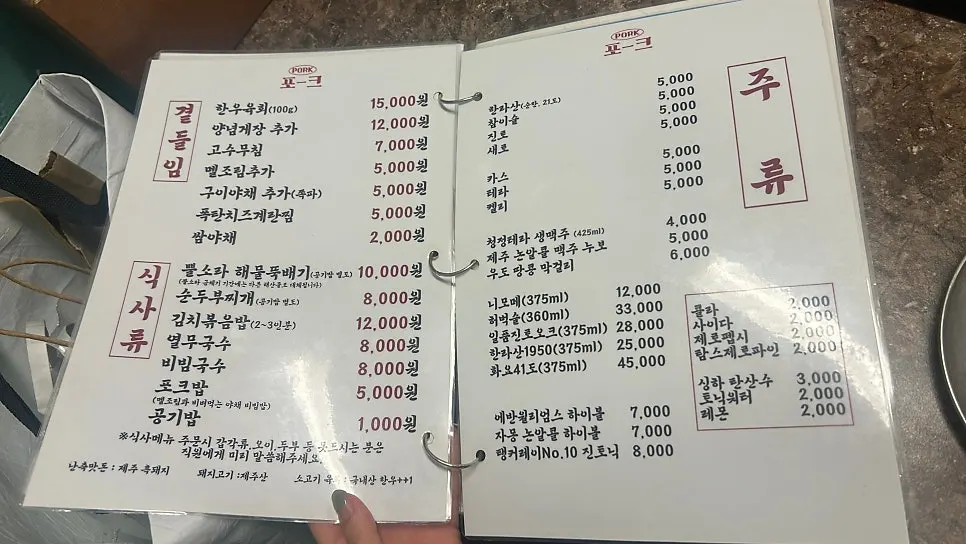 PORK
포크
곁들임
한우육회(100g) 15,000원
양념게장 추가 12,000원
고수무침 7,000원
멜조림추가 5,000원
구이야채 추가(쪽파) 5,000원
폭탄치즈계란찜 5,000원
쌈야채 2,000원
식사류
뿔소라 해물뚝배기(공기밥 별도) 10,000원
(뿔소라 금채기 기간에는 다른 해산물로 대체됩니다)
순두부찌개(공기밥 별도) 8,000원
김치볶음밥(2~3인분) 12,000원
열무국수 8,000원
비빔국수 8,000원
포크밥 5,000원
(멜조림과 비벼먹는 야채 비빔밥)
공기밥 1,000원
※식사메뉴 주문시 갑각류,오이,두부 등 못드시는 분은
직원에게 미리 말씀해주세요.
난축맛돈 : 제주 흑돼지 돼지고기 :제주산 소고기 국내산 한우++1
PORK
포크
주류
한라산(순한, 21도) 5,000
참이슬 5,000
진로 5,000
새로 5,000
카스 5,000
테라 5,000
켈리 5,000
청정테라 생맥주 (425ml) 4,000
제주 논알콜 맥주 누보 5,000
우도 땅콩 막걸리 6,000
니모메(375ml) 12,000
허벅술(360ml) 33,000
일품진로오크(375ml) 28,000
한라산1950(375ml) 25,000
화요41도(375ml) 45,000
에반윌리엄스 하이볼 7,000
자몽 논알콜 하이볼 7,000
탱커레이No.10 진토닉 8,000
콜라 2,000
사이다 2,000
제로펩시 2,000
탐스제로파인 2,000
싱하 탄산수 3,000
토닉워터 2,000
레몬 2,000